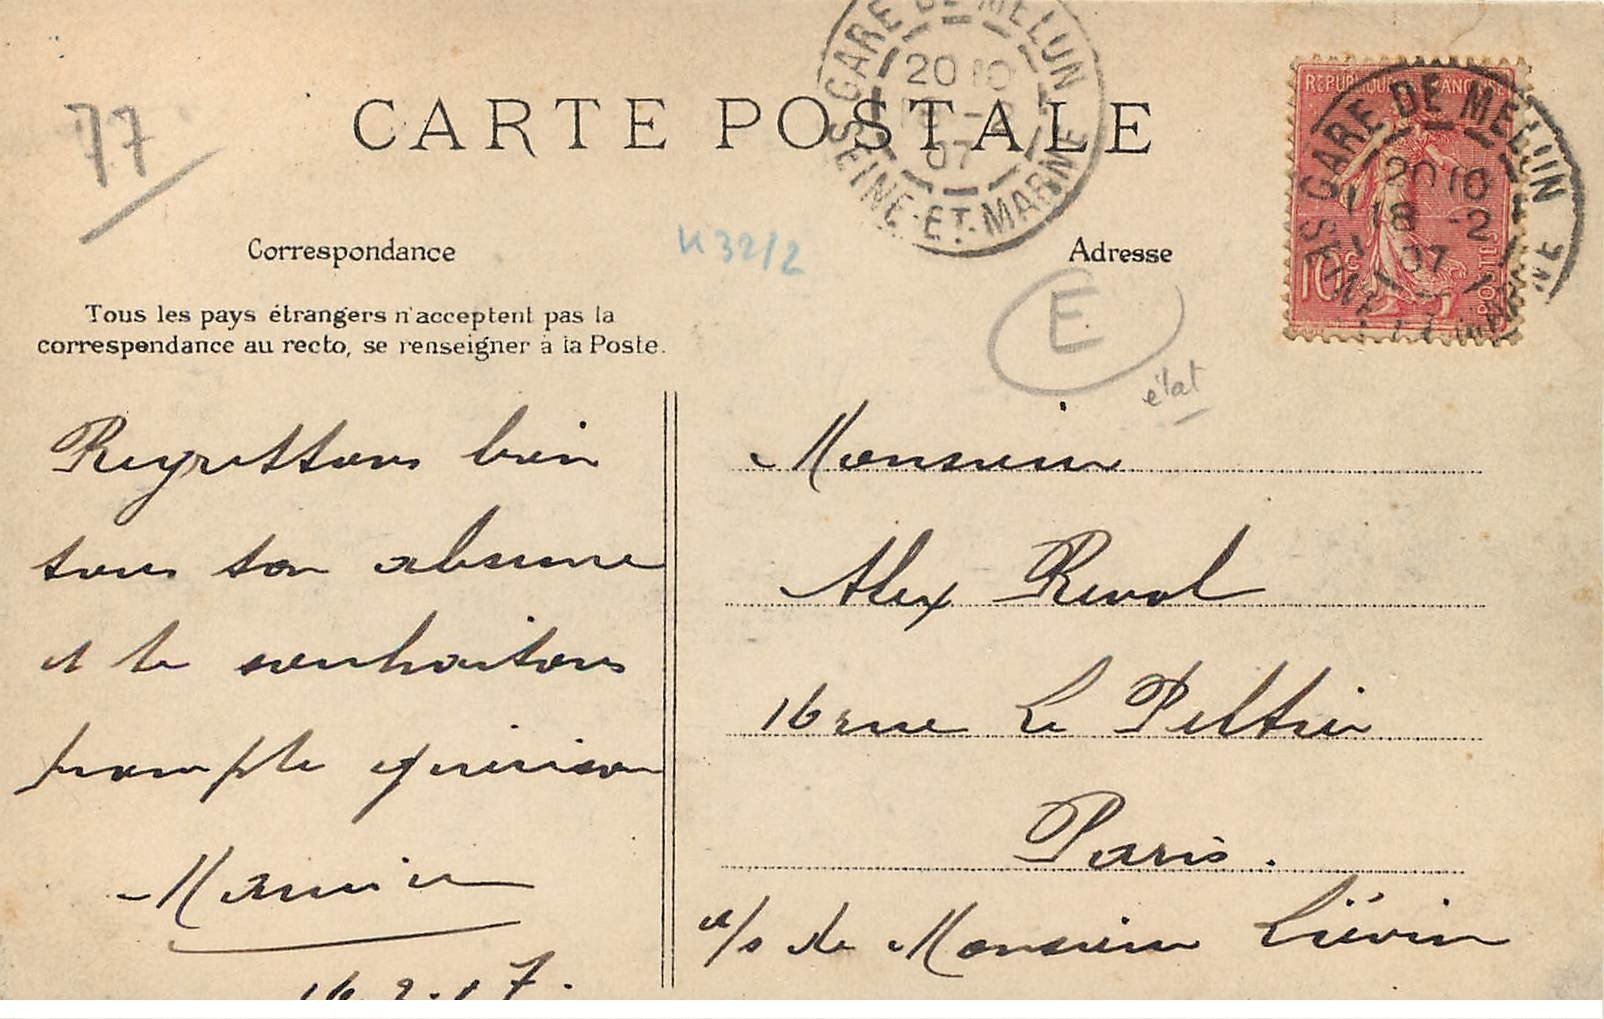 GARE DE MELUN
20 10
07
SEINE-ET-MARNE
RÉPUBLIQUE FRANÇAISE
10c
POSTES
GARE DE MELUN
20 10
18 -2
07
SEINE-ET-MARNE
77
CARTE POSTALE
K32/2
Correspondance
Adresse
E
état
Tous les pays étrangers n'acceptent pas la
correspondance au recto, se renseigner à la Poste.
Regrettons bien
tous ton absence
et te souhaitons
prompte guérison
16.2.07.
Monsieur
Alex Revol
16 rue Le Peltier
Paris.
a/s de Monsieur Liévin